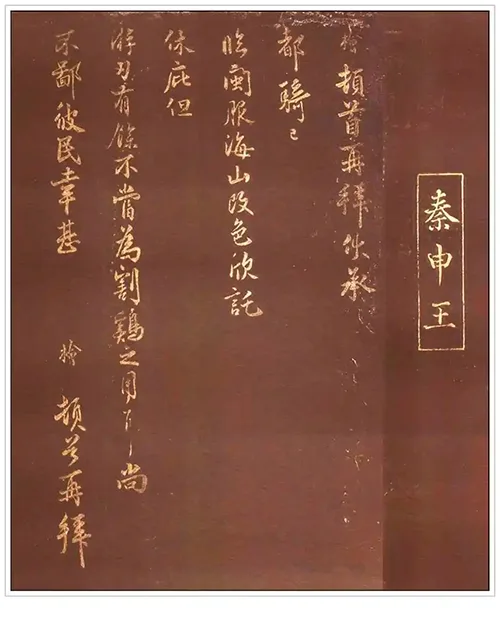 秦申王
檜頓首再拜伏承
都騎已
臨閩服海山改色欣託
庥庇但
游刃有餘不當為割鷄之用尚
不鄙彼民幸甚
檜頓首再拜